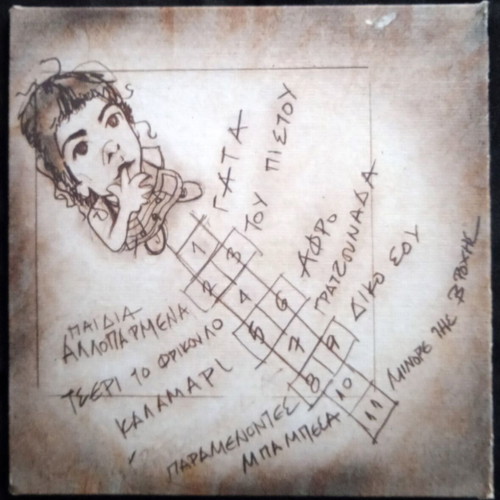 1 ΓΑΤΑ
2 ΠΑΙΔΙΑ ΑΛΛΟΠΑΡΜΕΝΑ
3 ΤΟΥ ΠΙΣΤΟΥ
4 ΤΣΕΡΙ ΤΟ ΦΡΙΚΟΥΛΟ
5 ΚΑΛΑΜΑΡΙ
6 ΑΦΡΟ
7 ΓΡΑΤΖΟΥΝΑΔΑ
8 ΠΑΡΑΜΕΝΟΝΤΕΣ
9 ΔΙΚΟ ΣΟΥ
10 ΜΠΑΜΠΕΣΑ
11 ΜΙΝΟΡΕ ΤΗΣ ΒΡΟΧΗΣ